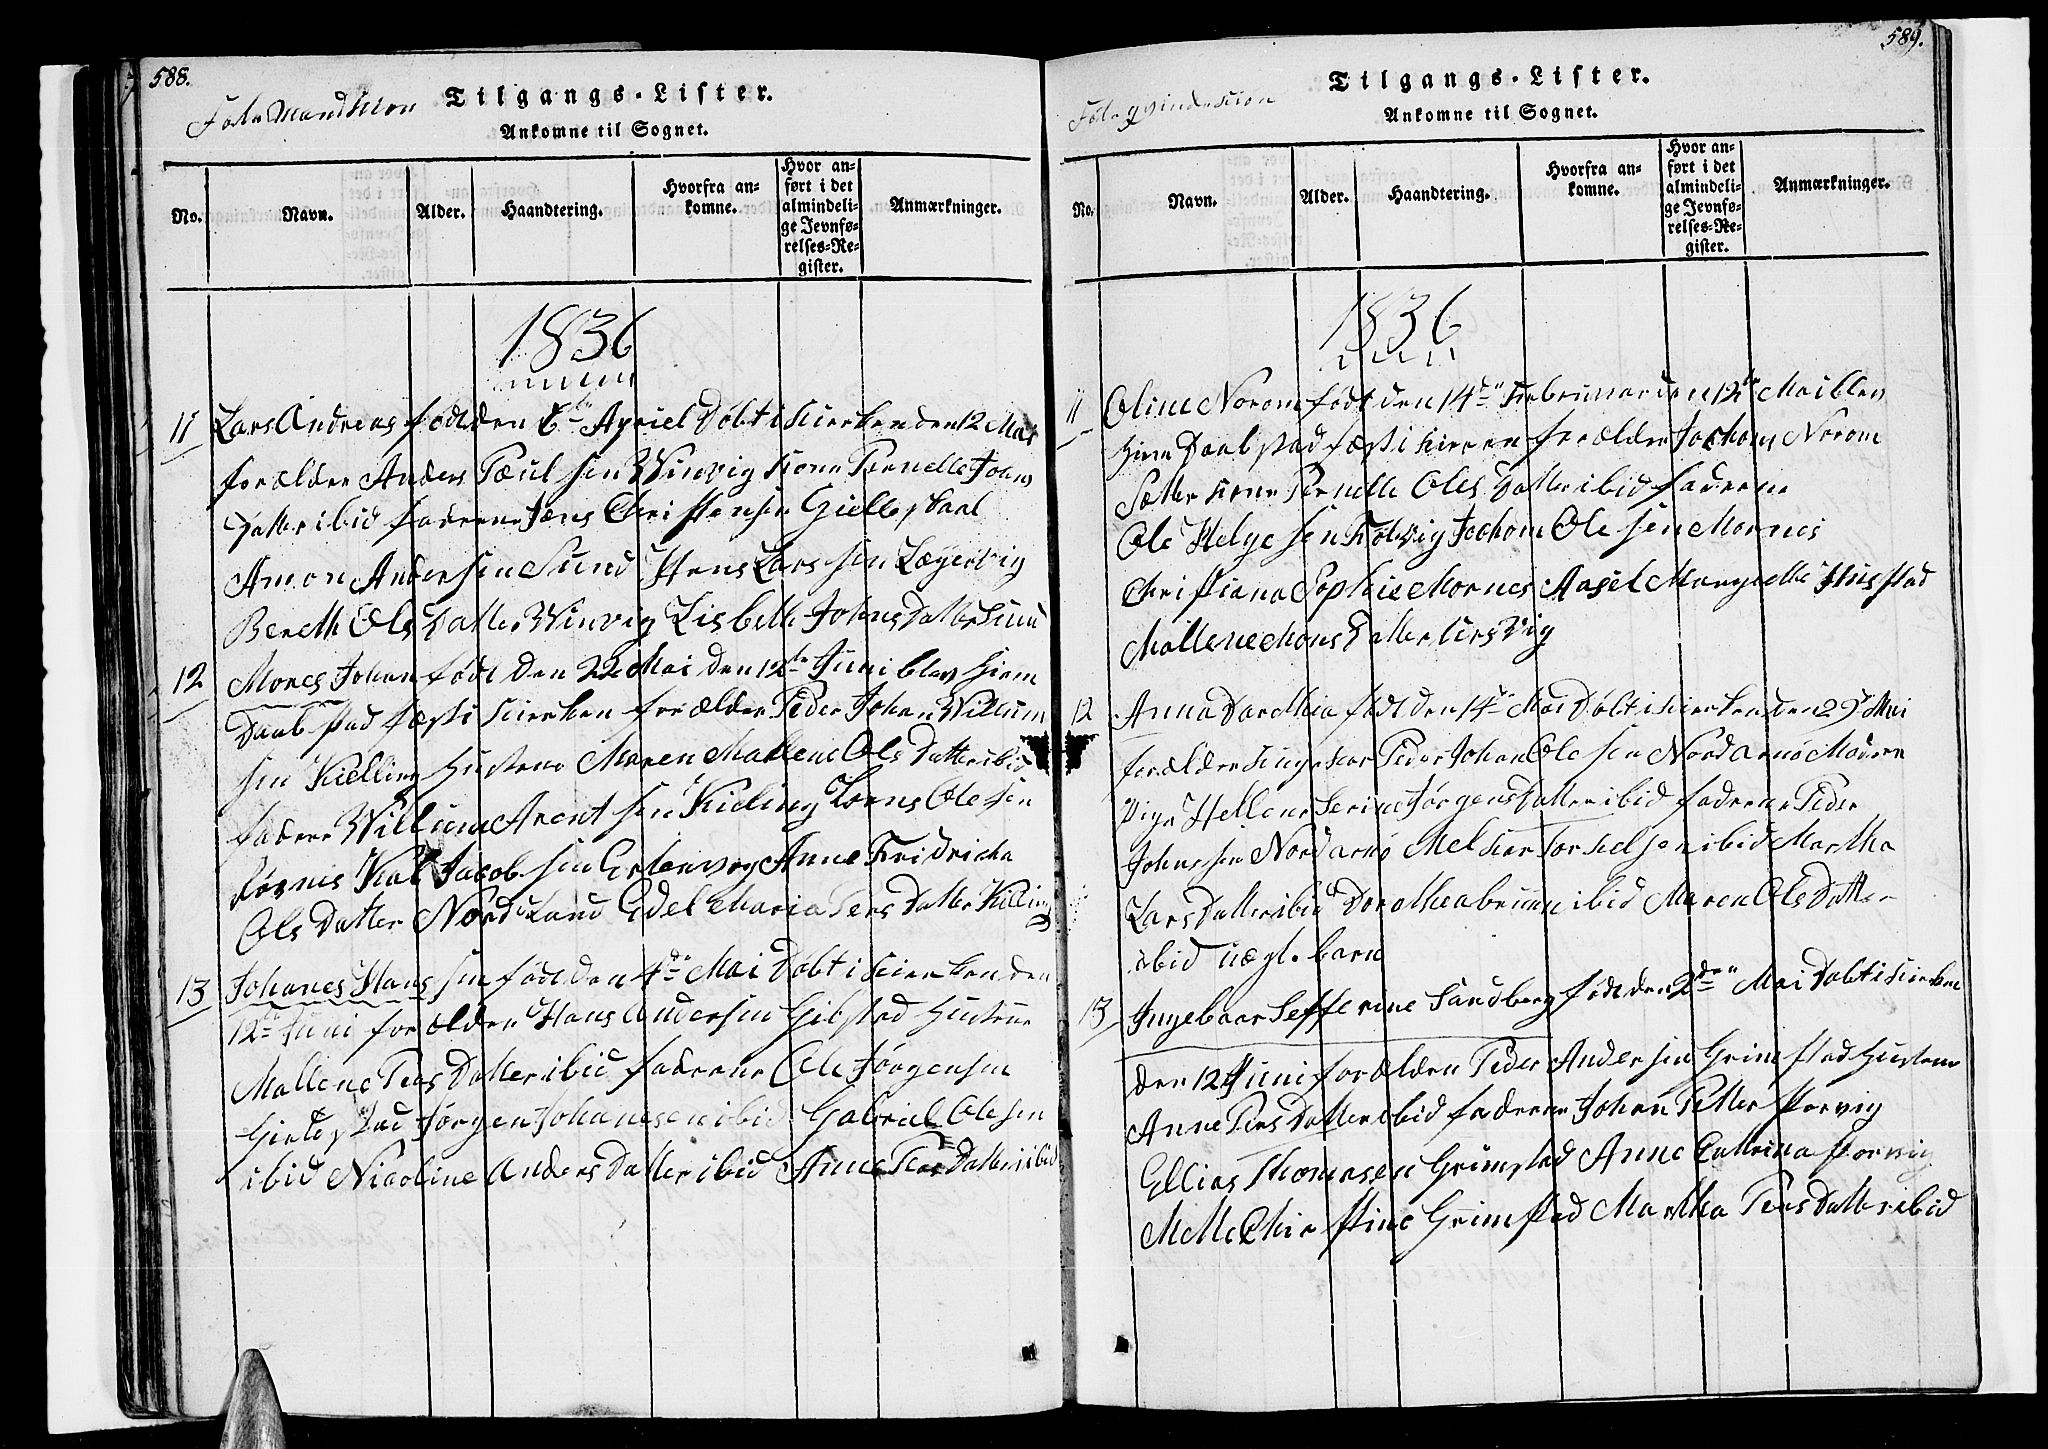 588.
Føde Mandkion
Tilgangs-Lister.
Ankomne til Sognet.
No.
Navn.
Alder.
Haandtering.
Hvorfra ankomne.
Hvor anført i det almindelige Jevnførelses-Register.
Anmærkninger.
1836
11 Lars Andreas født den 6te Apriel Døbt i Kierken den 12 Mai
forældre Anders Poul sen Winvig kone Pernelle Johns
Datter ibid faderne Jens Christensen Gielle staal
Amon Andersen Sund Hens Lars sen Lægervig
Bereth Ols Datter Winvig Lisbeth Johns Datter Sund
12 Mones Johan født den 22 Mai den 12te Juni blev Hiem
Daab stad fæst i Kierken forældre Peder Johan Willum
sen Kielling Hustrue Maren Mallene Ols Datter ibid
fadere Willum Arent sen Kieling Lorns Ole sen
Kal Jacob sen Anne Fridricha
Ols Datter Nord Land Edel Maria Pers Datter Killing
13 Johanes Hans sen født den 4de Mai Døbt i Kierken den
12te Juni forældre Hans Andersen Gilstad Hustrue
Mallene Pers Datter ibid faderne Ole Jørgensen
Gield stad Jørgen Johanesen ibid Gabriel Olesen
ibid Nicoline Anders Datter ibid Anne Pers Datter ibid
589.
Føde qvindekion
Tilgangs-Lister.
Ankomne til Sognet.
No.
Navn.
Alder.
Haandtering.
Hvorfra ankomne.
Hvor anført i det almindelige Jevnførelses-Register.
Anmærkninger.
1836
11 Oline Norom født den 14de Februar den 12te Mai blev
Hiem Daab stad fæst i Kierken forældre Jochom Norom
Sætter kone Pernelle Ols Datter ibid faderne
Ole Helge sen Jochom Ole sen Mornes
Christiana Sophie Mornes Aasel Margrethe Husstad
Mallene Mons Datter
12 Anna Dardthia født den 14de Mai Døbt i Kierken den 29de Mai
forældre Ungekar Peder Johan Ole sen Nord Arnø Modern
Pige Hellene Serine Jørgens Datter ibid faderne Peder
Johns sen Nord arnø Melkior Torkelsen ibid Martha
Lars Datter ibid Dorothea bruun ibid Maren Ols Datter
ibid uægt. barn
13 Ingebaar Sefferine Sandberg født den 2den Mai Døbt i Kierken
den 12te Juni forældre Peder Andersen Grimstad Hustrue
Anne Pers Datter ibid faderne Johan Petter Storvig
Ellias Thomesen Grimstad Anne Cattrina Storvig
Mette Christine Grimstad Martha Pers Datter ibid